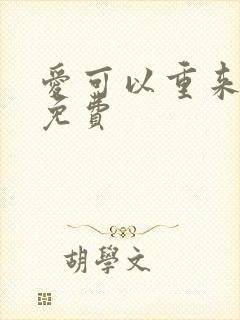 愛可以重来
免費
胡學文